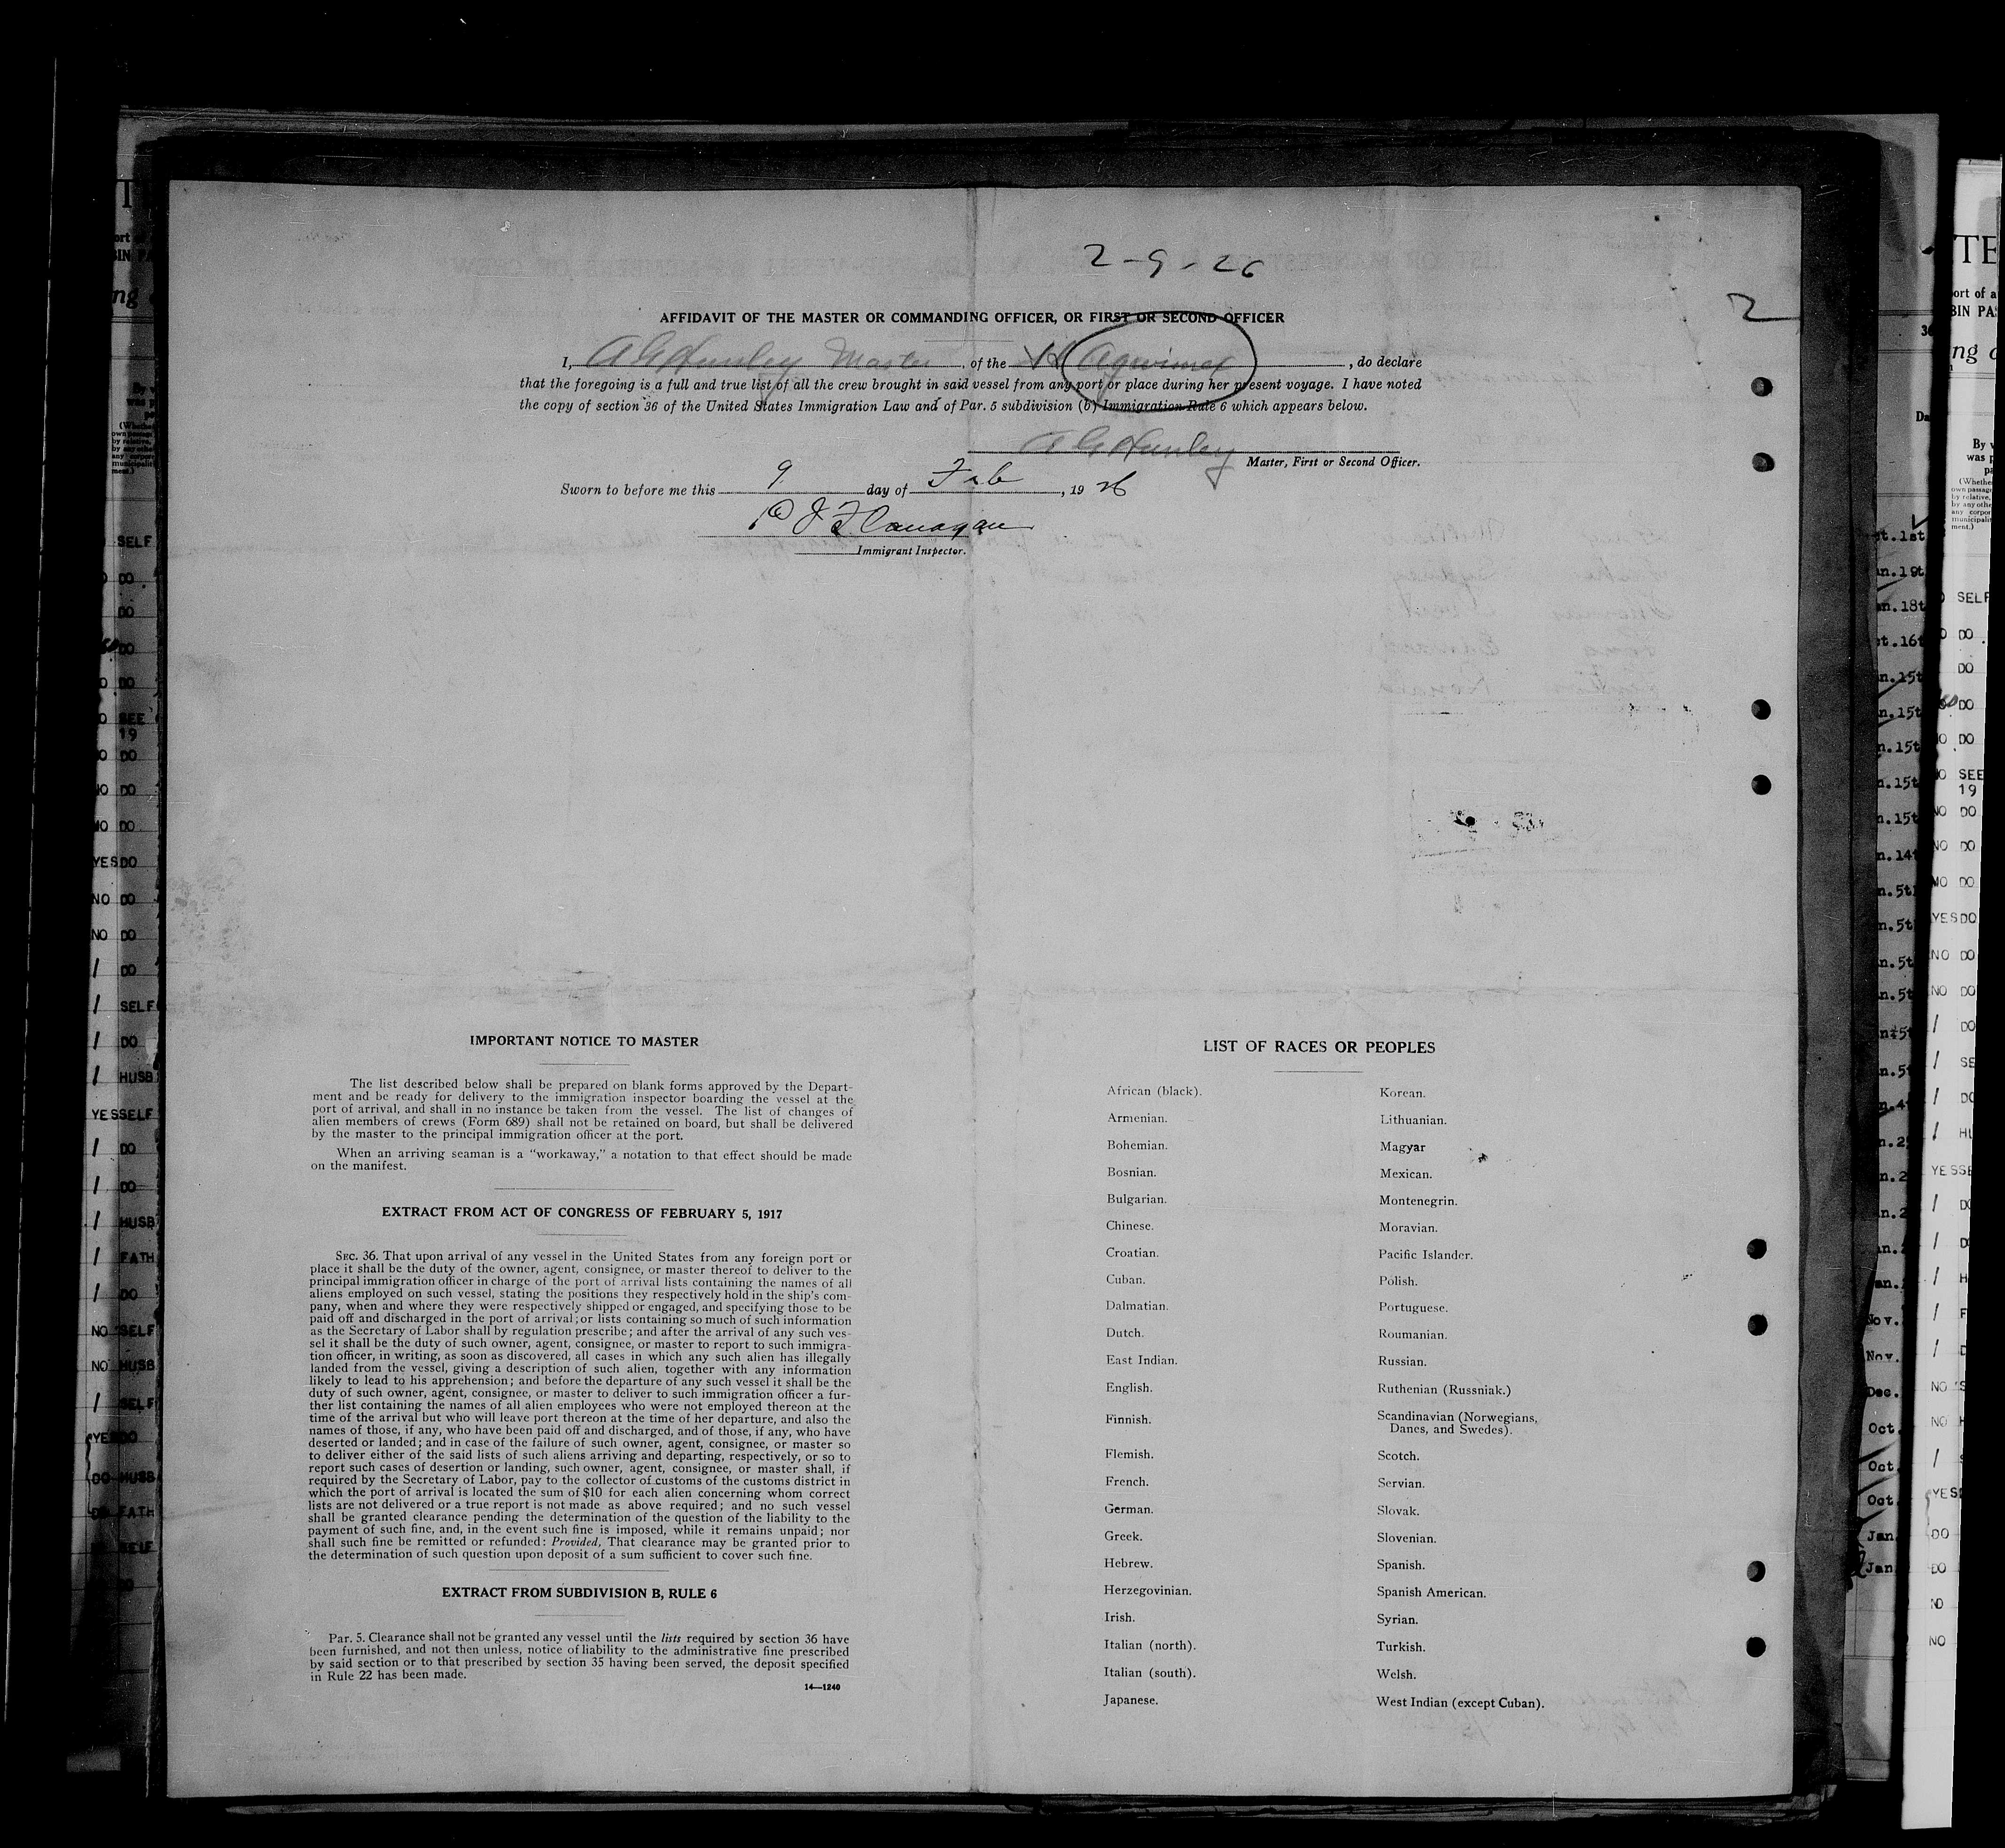 2-9-26
2
AFFIDAVIT OF THE MASTER OR COMMANDING OFFICER, OR FIRST OR SECOND OFFICER
I, Master, of the , do declare
that the foregoing is a full and true list of all the crew brought in said vessel from any port or place during her present voyage. I have noted
the copy of section 36 of the United States Immigration Law and of Par. 5 subdivision (b) Immigration Rule 6 which appears below.
Master, First or Second Officer.
Sworn to before me this 9 day of Feb, 1926
P J Flanagan
Immigrant Inspector.
IMPORTANT NOTICE TO MASTER
The list described below shall be prepared on blank forms approved by the Depart-
ment and be ready for delivery to the immigration inspector boarding the vessel at the
port of arrival, and shall in no instance be taken from the vessel. The list of changes of
alien members of crews (Form 689) shall not be retained on board, but shall be delivered
by the master to the principal immigration officer at the port.
When an arriving seaman is a "workaway," a notation to that effect should be made
on the manifest.
EXTRACT FROM ACT OF CONGRESS OF FEBRUARY 5, 1917
SEC. 36. That upon arrival of any vessel in the United States from any foreign port or
place it shall be the duty of the owner, agent, consignee, or master thereof to deliver to the
principal immigration officer in charge of the port of arrival lists containing the names of all
aliens employed on such vessel, stating the positions they respectively hold in the ship's com-
pany, when and where they were respectively shipped or engaged, and specifying those to be
paid off and discharged in the port of arrival; or lists containing so much of such information
as the Secretary of Labor shall by regulation prescribe; and after the arrival of any such ves-
sel it shall be the duty of such owner, agent, consignee, or master to report to such immigra-
tion officer, in writing, as soon as discovered, all cases in which any such alien has illegally
landed from the vessel, giving a description of such alien, together with any information
likely to lead to his apprehension; and before the departure of any such vessel it shall be the
duty of such owner, agent, consignee, or master to deliver to such immigration officer a fur-
ther list containing the names of all alien employees who were not employed thereon at the
time of the arrival but who will leave port thereon at the time of her departure, and also the
names of those, if any, who have been paid off and discharged, and of those, if any, who have
deserted or landed; and in case of the failure of such owner, agent, consignee, or master so
to deliver either of the said lists of such aliens arriving and departing, respectively, or so to
report such cases of desertion or landing, such owner, agent, consignee, or master shall, if
required by the Secretary of Labor, pay to the collector of customs of the customs district in
which the port of arrival is located the sum of $10 for each alien concerning whom correct
lists are not delivered or a true report is not made as above required; and no such vessel
shall be granted clearance pending the determination of the question of the liability to the
payment of such fine, and, in the event such fine is imposed, while it remains unpaid; nor
shall such fine be remitted or refunded: Provided, That clearance may be granted prior to
the determination of such question upon deposit of a sum sufficient to cover such fine.
EXTRACT FROM SUBDIVISION B, RULE 6
Par. 5. Clearance shall not be granted any vessel until the lists required by section 36 have
been furnished, and not then unless, notice of liability to the administrative fine prescribed
by said section or to that prescribed by section 35 having been served, the deposit specified
in Rule 22 has been made.
14—1240
LIST OF RACES OR PEOPLES
African (black).
Armenian.
Bohemian.
Bosnian.
Bulgarian.
Chinese.
Croatian.
Cuban.
Dalmatian.
Dutch.
East Indian.
English.
Finnish.
Flemish.
French.
German.
Greek.
Hebrew.
Herzegovinian.
Irish.
Italian (north).
Italian (south).
Japanese.
Korean.
Lithuanian.
Magyar
Mexican.
Montenegrin.
Moravian.
Pacific Islander.
Polish.
Portuguese.
Roumanian.
Russian.
Ruthenian (Russniak.)
Scandinavian (Norwegians,
Danes, and Swedes).
Scotch.
Servian.
Slovak.
Slovenian.
Spanish.
Spanish American.
Syrian.
Turkish.
Welsh.
West Indian (except Cuban).